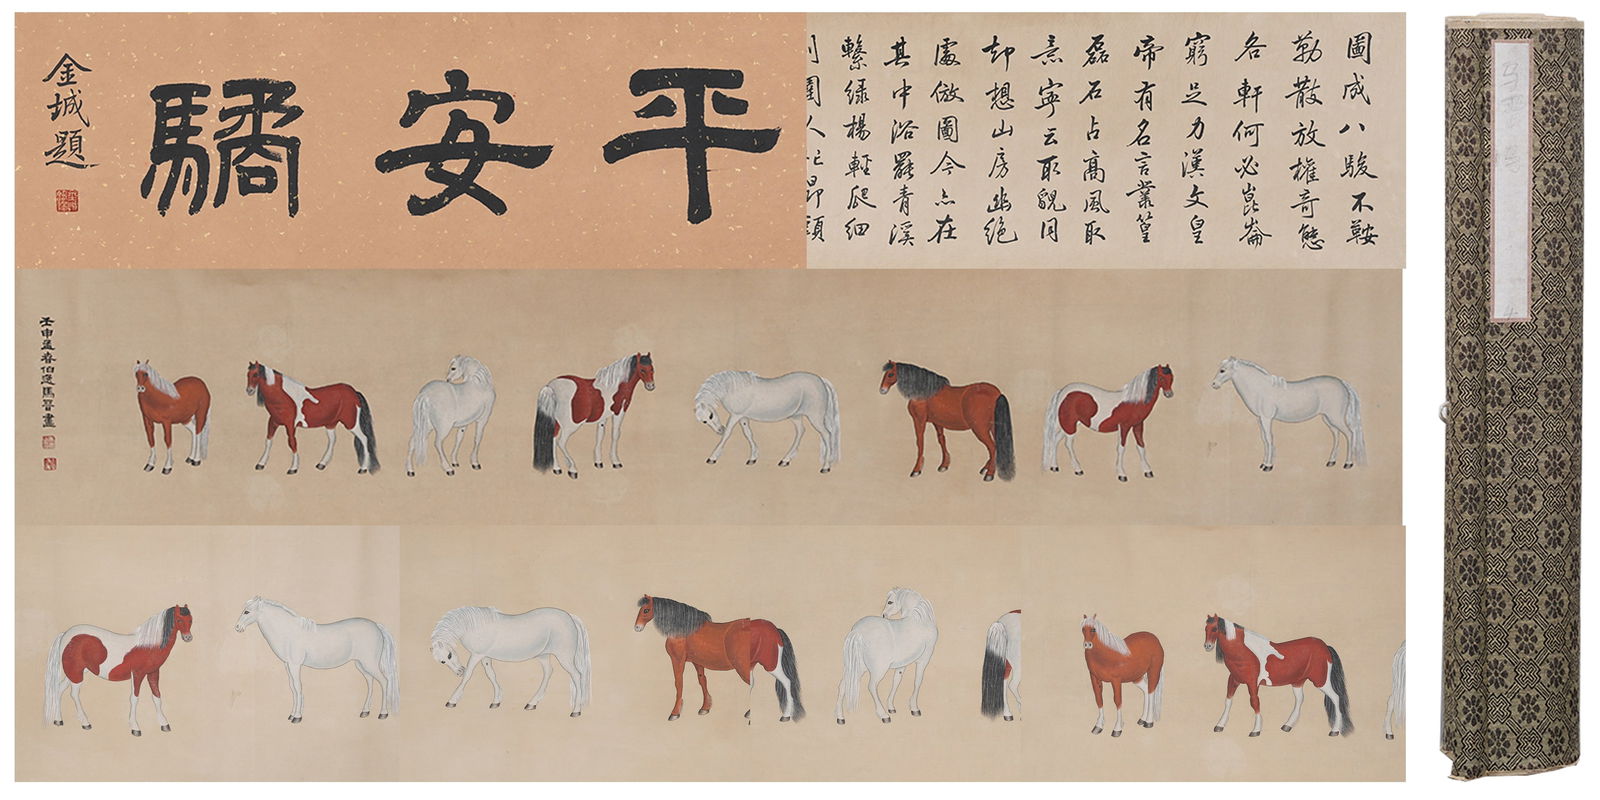 平安驕
金城題
圖成八駿不鞍
勒散放權奇態
各軒何必崑崙
窮足力漢文皇
帝有名言叢篁
磊石占高風取
意寧云取覬同
却想山房幽絕
處倣圖今亦在
其中浴罷青溪
繫綠楊輕爬細
壬申孟春伯逸馬晉畫